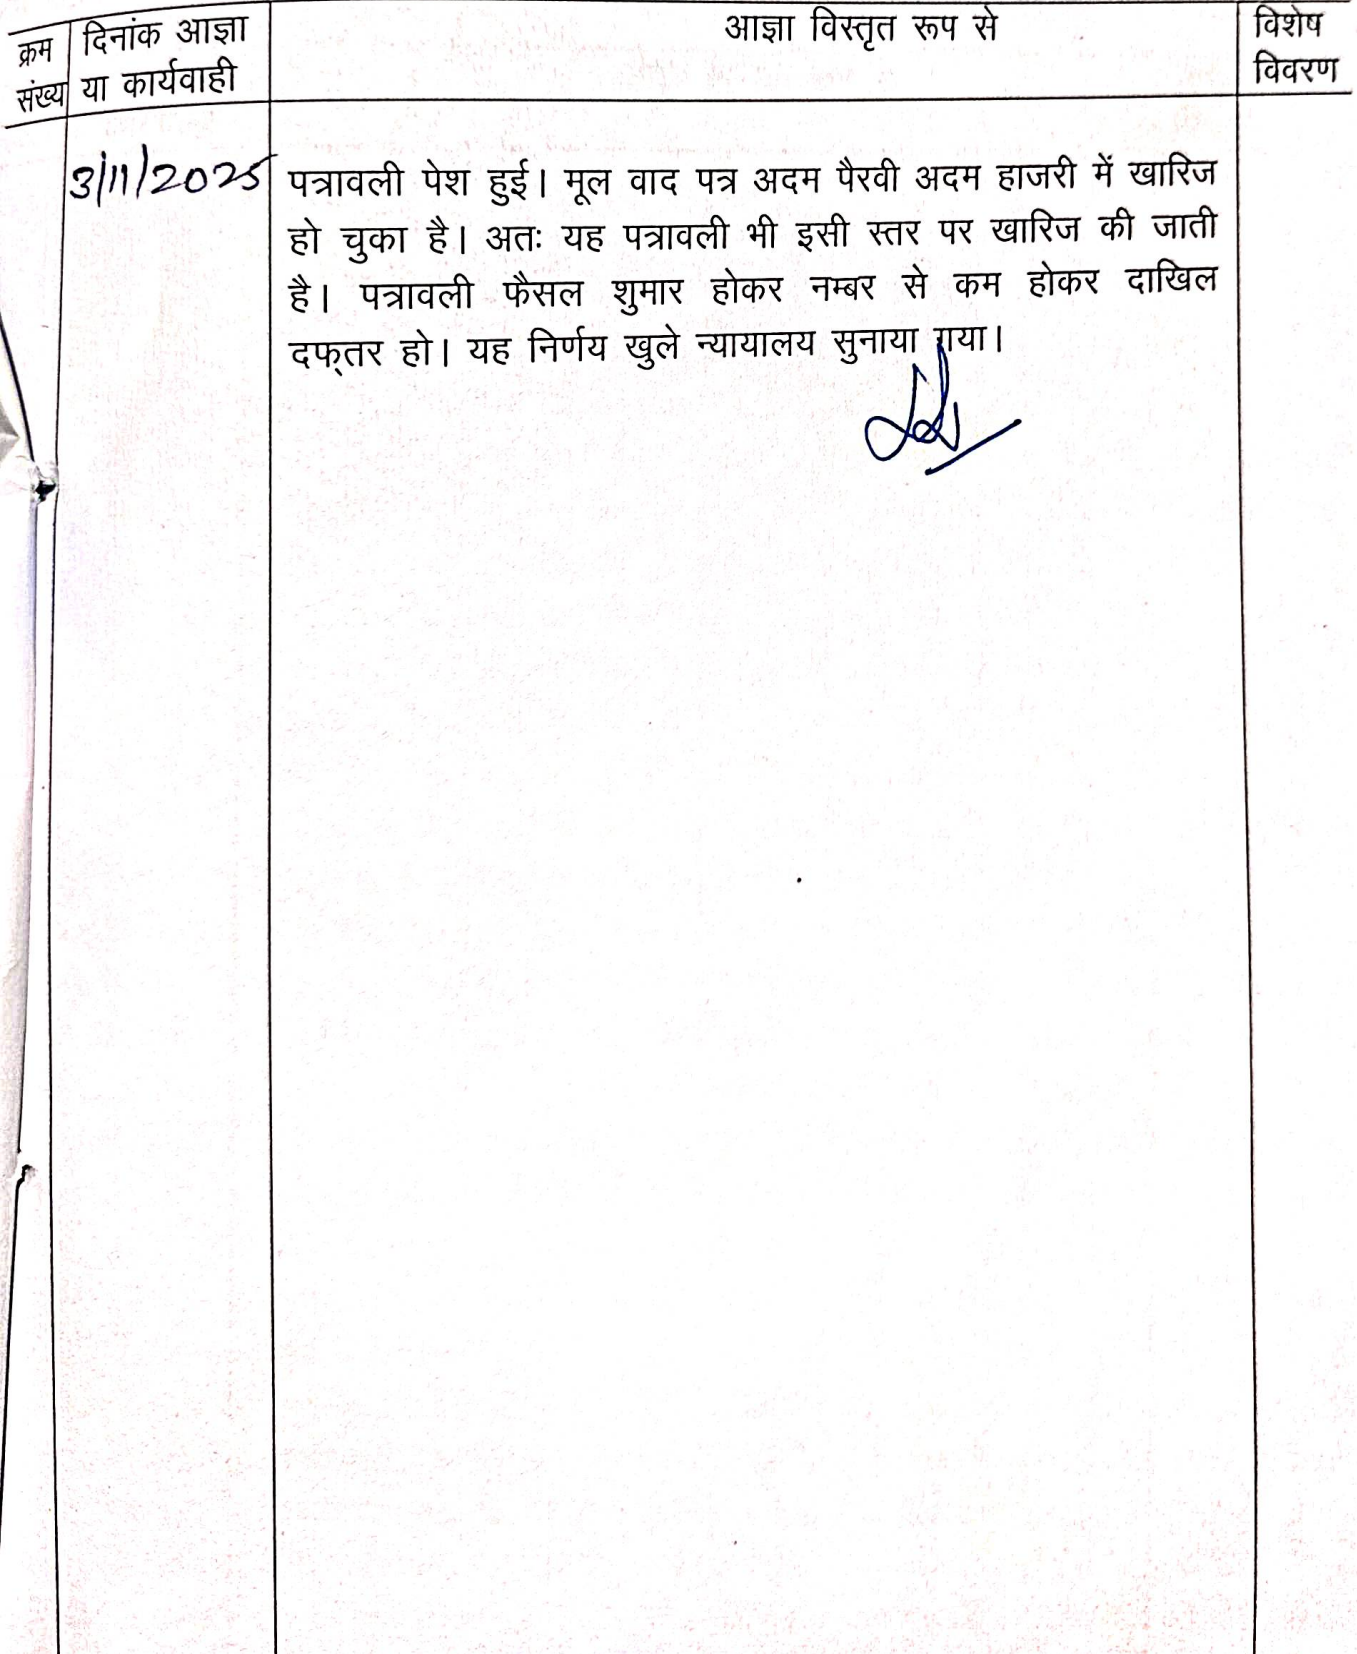 क्रम संख्य
दिनांक आज्ञा
या कार्यवाही
आज्ञा विस्तृत रूप से
विशेष
विवरण
3/11/2025
पत्रावली पेश हुई। मूल वाद पत्र अदम पैरवी अदम हाजरी में खारिज
हो चुका है। अतः यह पत्रावली भी इसी स्तर पर खारिज की जाती
है। पत्रावली फैसल शुमार होकर नम्बर से कम होकर दाखिल
दफ्तर हो। यह निर्णय खुले न्यायालय सुनाया गया।